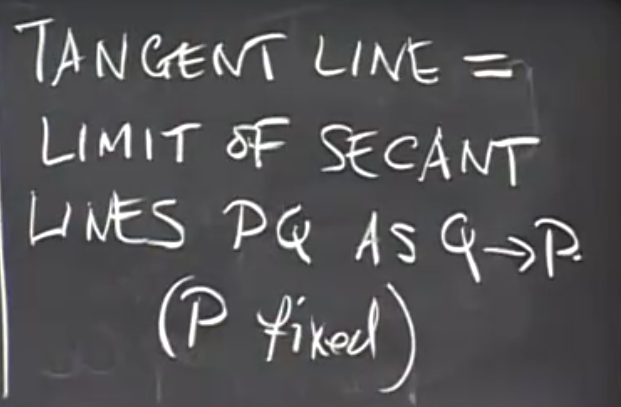 TANGENT LINE =
LIMIT OF SECANT
LINES PQ AS Q→P.
(P fixed)